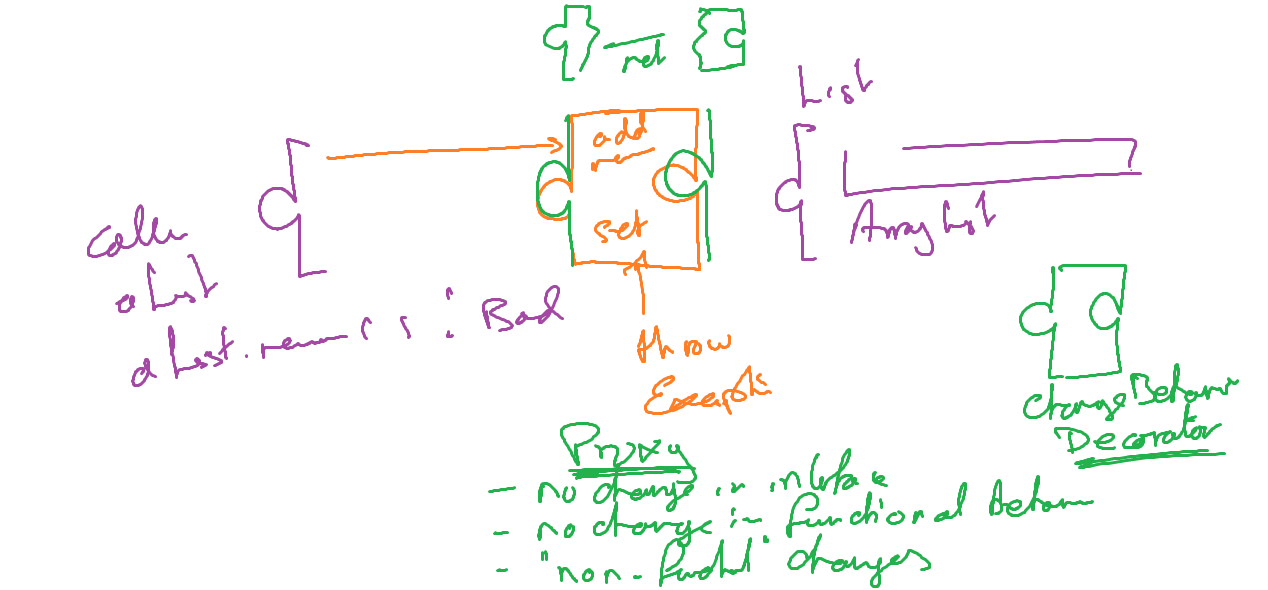 net
List
add
rem
set
ArrayList
Caller
aList
aList.rem( ) : Bad
throw
Exception
Change Behavior
Decorator
Proxy
- no change in interface
- no change in functional behavior
- "non-functional" changes